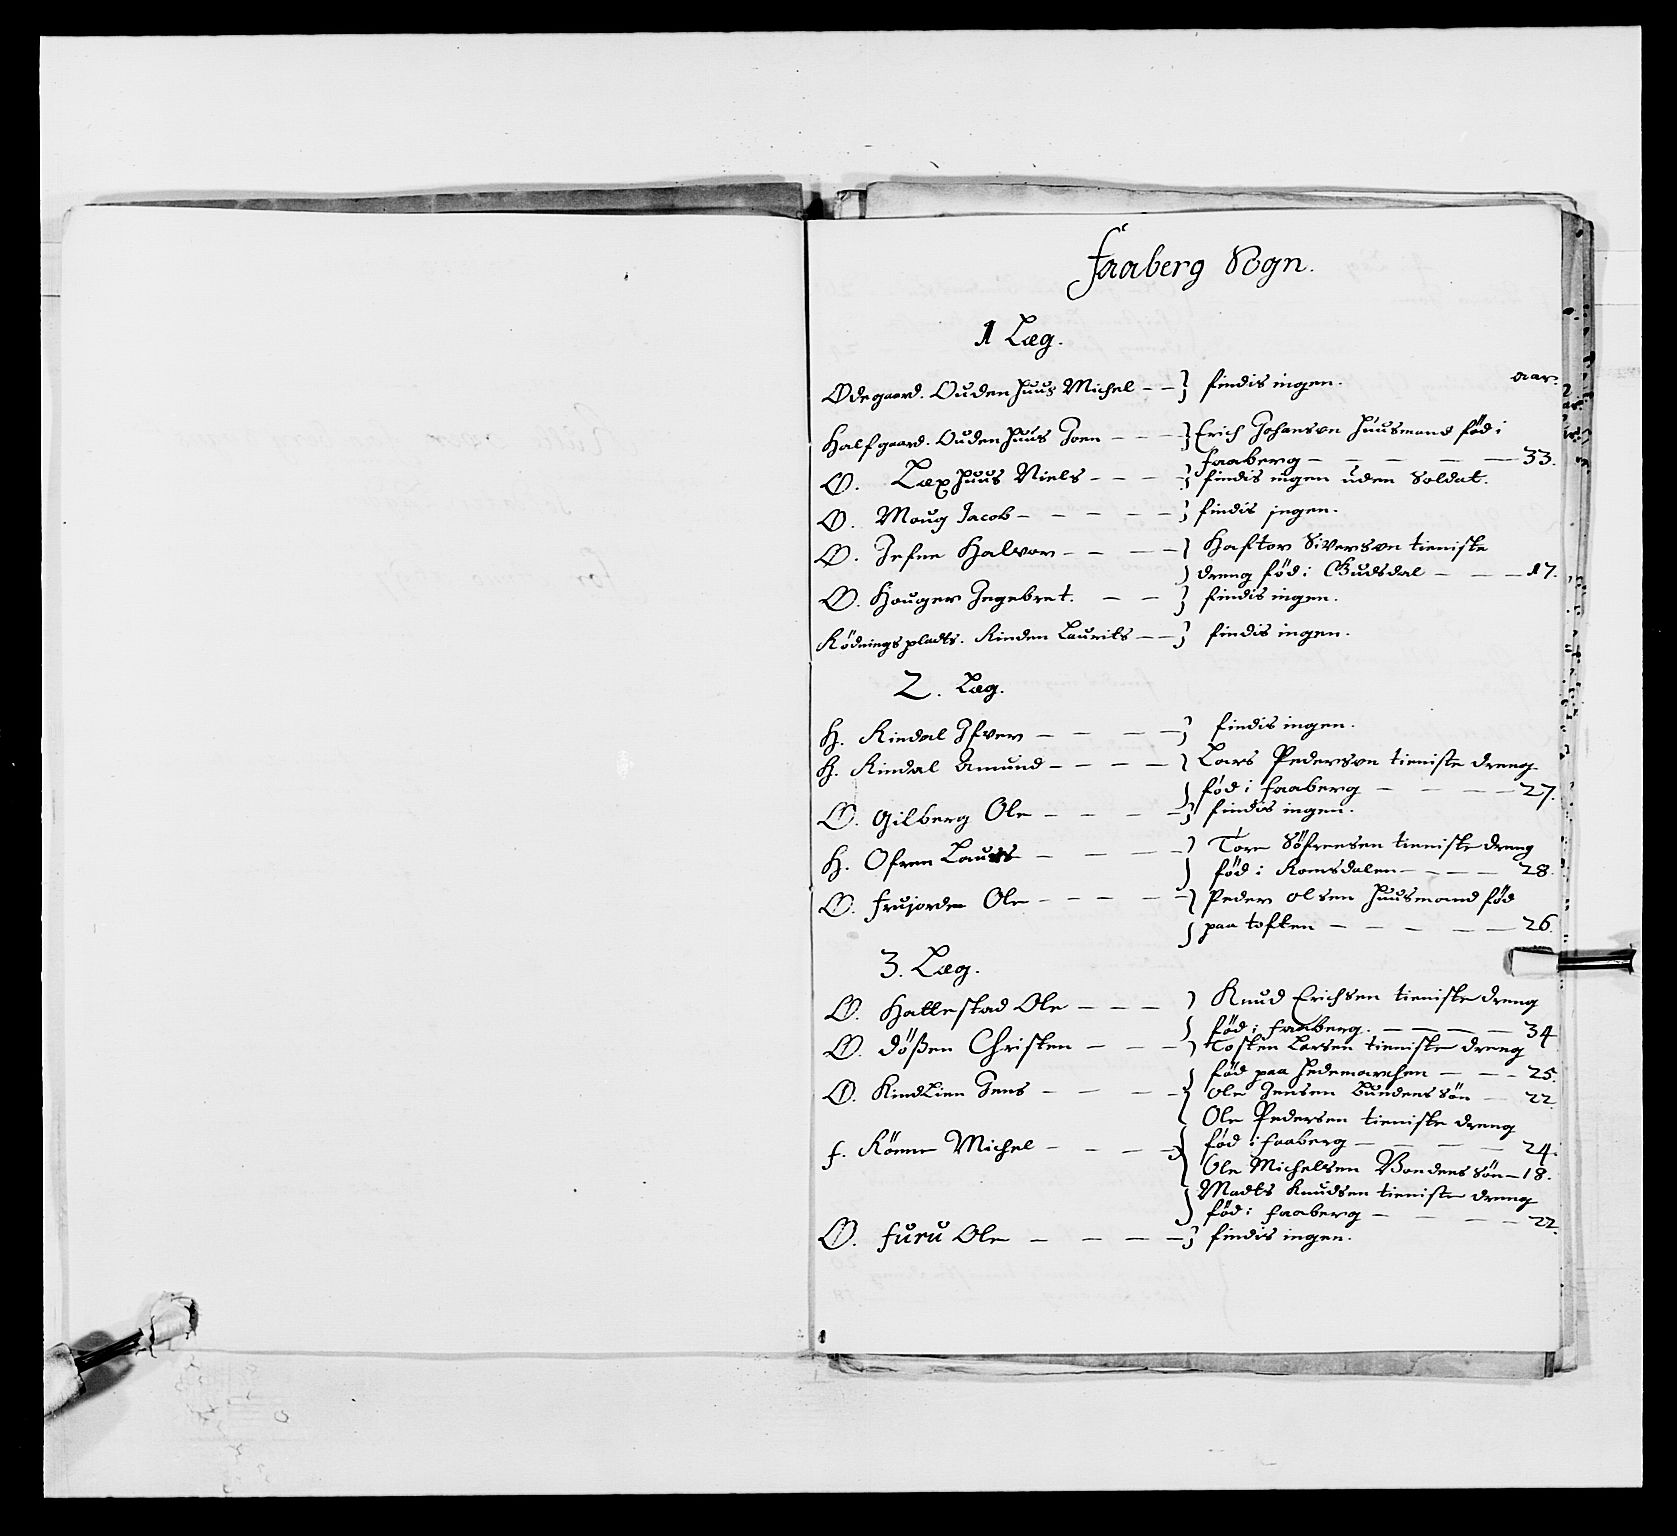 Faaberg Sogn.
1 Læg.
aar.
Ødegaard. Oudenhuus Michel – – } findis ingen.
Halfgaard. Oudenhuus Joen – – – } Erich Johanson huusmand fød i
faaberg – – – – – 33.
Ø. Laxhuus Niels – – – } findis ingen uden Soldat.
Ø. Moug Jacob – – – – – } findis jngen.
Ø. Jefne Halvor – – – – } Haftor Siverson tieniste
dreng fød i Gudsdal – – – 17.
Ø. Houger Ingebret. – – } findis ingen.
Rødningspladts. Rinden Laurits – – } findis ingen.
2. Læg.
H. Rindal Ifver – – – – } findis ingen.
H. Rindal Amund – – – – } Lars Pederson tieniste dreng
fød i faaberg – – – – 27.
Ø. Gilberg Ole – – – – } findis ingen.
H. Ofren Laurs – – – – } Tore Søfrensen tieniste dreng
fød i Romsdalen – – – – 28.
Ø. frujorde Ole – – – – } Peder olsen huusmand fød
paa toften – – – – – 26.
3. Læg.
Ø. Hattestad Ole – – – } Knud Erichsen tieniste dreng
fød i faaberg. – – – – 34
Ø. Døßen Christen – – – } Tosten Larsen tieniste dreng
fød paa hedemarchen – – – 25.
Ø. Kindlien Jens – – – – } Ole Jensen bundens søn – 22.
Ole Pedersen tieniste dreng
fød i faaberg – – – – 24.
f. Rönne Michel – – – – } Ole Michelsen Bondens søn – 18.
Madts Knudsen tieniste dreng
fød i faaberg – – – – 22.
Ø. furu Ole – – – – } findis ingen.